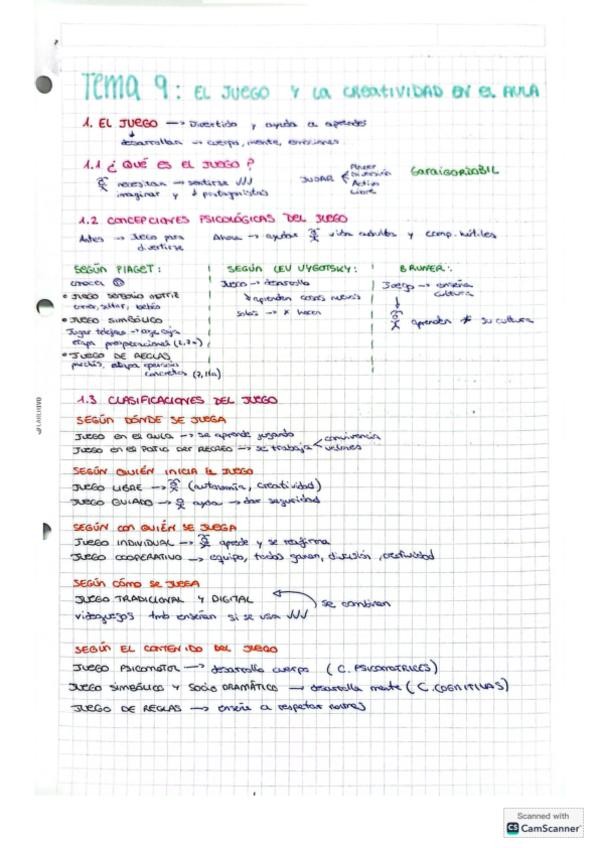 Tema 9: EL JUEGO Y LA CREATIVIDAD EN EL AULA
1. EL JUEGO → Divertido y ayuda a aprender
desarrollan → cuerpo, mente, emociones
1.1 ¿QUÉ ES EL JUEGO?
necesitan → sentirse ✓✓✓
imaginar y protagonistas
JUGAR
Placer
Diversión
Activa
Libre
Garaigordobil
1.2 CONCEPCIONES PSICOLÓGICAS DEL JUEGO
Antes → Juego para divertirse
Ahora → ayudar vida adultos y comp. hútiles
SEGÚN PIAGET:
conocer
• JUEGO SENSORIO MOTRIZ
correr, saltar,
• JUEGO SIMBÓLICO
Jugar
etapa preoperacional (2,7a)
• JUEGO DE REGLAS
parchís, etapa operacio concretas (7,11a)
SEGÚN LEV VYGOTSKY:
Juego → desarrollo
aprenden cosas nuevas
solos → x hacer
BRUNER:
Juego → enseña cultura
aprenden * su cultura
1.3 CLASIFICACIONES DEL JUEGO
SEGÚN DÓNDE SE JUEGA
JUEGO EN EL AULA → se aprende jugando
JUEGO EN EL PATIO DEL RECREO → se trabaja
convivencia
valores
SEGÚN QUIÉN INICIA EL JUEGO
JUEGO LIBRE → (autonomía, creatividad)
JUEGO GUIADO → ayuda → dar seguridad
SEGÚN CON QUIÉN SE JUEGA
JUEGO INDIVIDUAL → aprede y se reafirma
JUEGO COOPERATIVO → equipo, todos ganan, diversión, creatividad
SEGÚN CÓMO SE JUEGA
JUEGO TRADICIONAL Y DIGITAL
se combinan
videojuegos tmb enseñan si se usa ✓✓✓
SEGÚN EL CONTENIDO DEL JUEGO
JUEGO PSICOMOTOR → desarrolla cuerpo (C. PSICOMOTRICES)
JUEGO SIMBÓLICO Y SOCIO DRAMÁTICO → desarrolla mente (C. COGNITIVAS)
JUEGO DE REGLAS → enseña a respetar normas
Scanned with
CS CamScanner